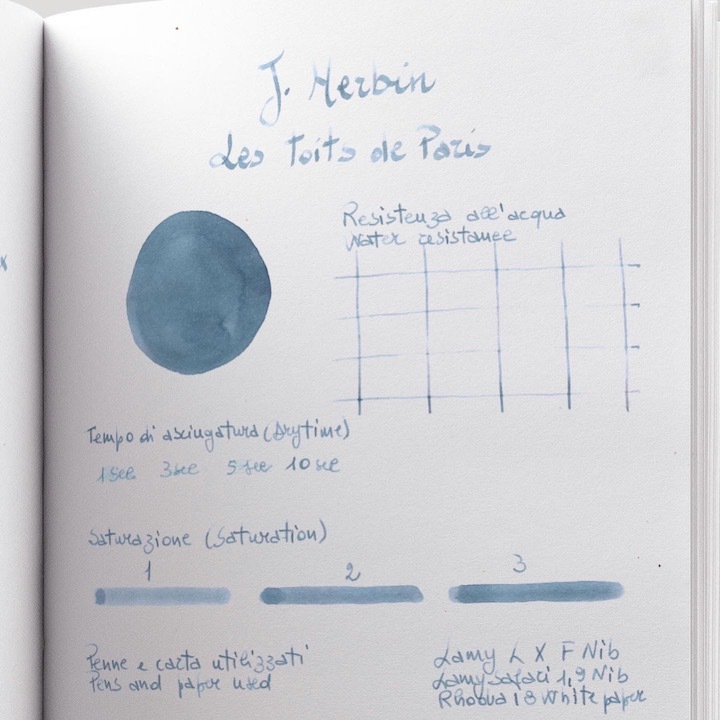 J. Herbin
Les Toits de Paris
Resistenza all'acqua
Water resistance
Tempo di asciugatura (Drytime)
1 sec 3 sec 5 sec 10 sec
Saturazione (Saturation)
1 2 3
Penne e carta utilizzati
Pens and paper used
Lamy L X F Nib
Lamy Safari 1,9 Nib
Rhodia 18 White paper
x